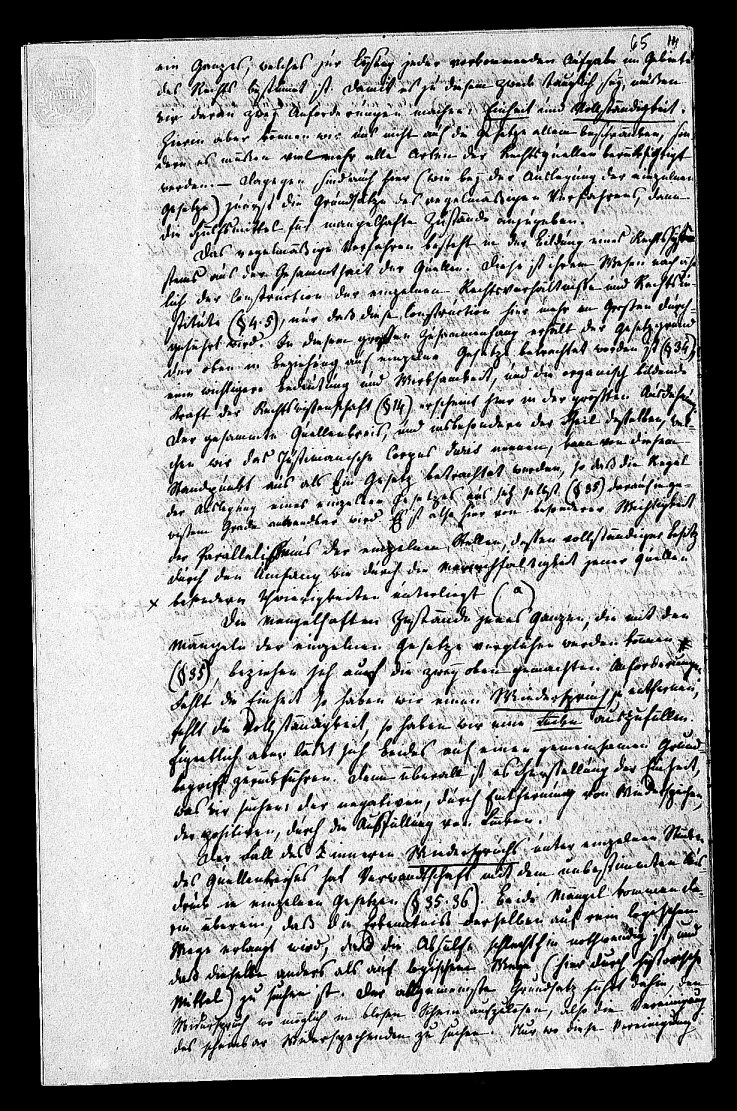 65
ein Ganzes, welches zur Lösung jeder vorkommenden Aufgabe im Gebiete
des Rechts bestimmt ist. Damit es zu diesem Zweck tauglich sey, müssen
wir daran zwey Anforderungen machen: Einheit und Vollständigkeit.
Hierin aber können wir uns nicht auf die Gesetze allein beschränken, son
dern es müssen viel mehr alle Arten der Rechtsquellen berücksichtigt
werden. – Dagegen sind auch hier (wie bey der Auslegung der einzelnen
Gesetze) zuerst die Grundsätze des regelmäßigen Verfahrens, dann
die Hülfsmittel für mangelhafte Zustände anzugeben.
Das regelmäßige Verfahren besteht in der Bildung eines Rechtssy
stems aus der Gesammtheit der Quellen. Diese ist ihrem Wesen nach
lich der Construction der einzelnen Rechtsverhältnisse und Rechtsin
stitute (§ 4. 5), nur daß diese Construction hier mehr im Großen durch-
geführt wird. In diesem großen Zusammenhang erhält der Gesetzgrund
der oben in Beziehung auf einzelne Gesetze betrachtet worden ist (§ 34),
eine wichtigere Bedeutung und Wirksamkeit, und die organisch bildende
Kraft der Rechtswissenschaft (§ 14) erscheint hier in der größten Ausdehnung
Der gesammte Quellenkreis, und insbesondere der Theil desselben, wel
chen wir das Justinianische Corpus Juris nennen, kann von diesem
Standpunkt aus als Ein Gesetz betrachtet werden, so daß die Regel
der Auslegung eines einzelnen Gesetzes aus sich selbst (§ 35) darauf in ge-
wissem Grade anwendbar wird. Es ist also hier von besonderer Wichtigkeit
der Parallelismus der einzelnen Stellen, dessen vollständiger Besitz
durch den Umfang wie durch die Mannichfaltigkeit jener Quellen
x besondern Schwierigkeiten unterliegt (a)
Die mangelhaften Zustände jenes Ganzen, die mit den
Mängeln der einzelnen Gesetze verglichen werden können
(§ 35), beziehen sich auf die zwey oben gemachten Anforderungen.
Fehlt die Einheit so haben wir einen Widerspruch zu entfernen,
fehlt die Vollständigkeit, so haben wir eine Lücke auszufüllen.
Eigentlich aber läßt sich Beides auf einen gemeinsamen Grund-
begriff zurückführen. Denn überall ist es Herstellung der Einheit,
was wir suchen: der negativen, durch Entfernung von Widersprüchen,
der positiven, durch die Ausfüllung von Lücken.
Der Fall des inneren Widerspruchs unter einzelnen Stücken
des Quellenkreises hat Verwandtschaft mit dem unbestimmten Aus
druck in einzelnen Gesetzen (§ 35. 36). Beide Mängel kommen da-
rin überein, daß die Erkenntniß derselben auf rein logischem
Wege erlangt wird, daß die Abhülfe schlechthin nothwendig ist, und
daß dieselbe anders als auf logischem Wege (hier durch historische
Mittel) zu suchen ist. Der allgemeinste Grundsatz führt dahin, den
Widerspruch wo möglich in bloßen Schein aufzulösen, also die Vereinigung
des scheinbar Widersprechenden zu suchen. Nur wo diese Vereinigung